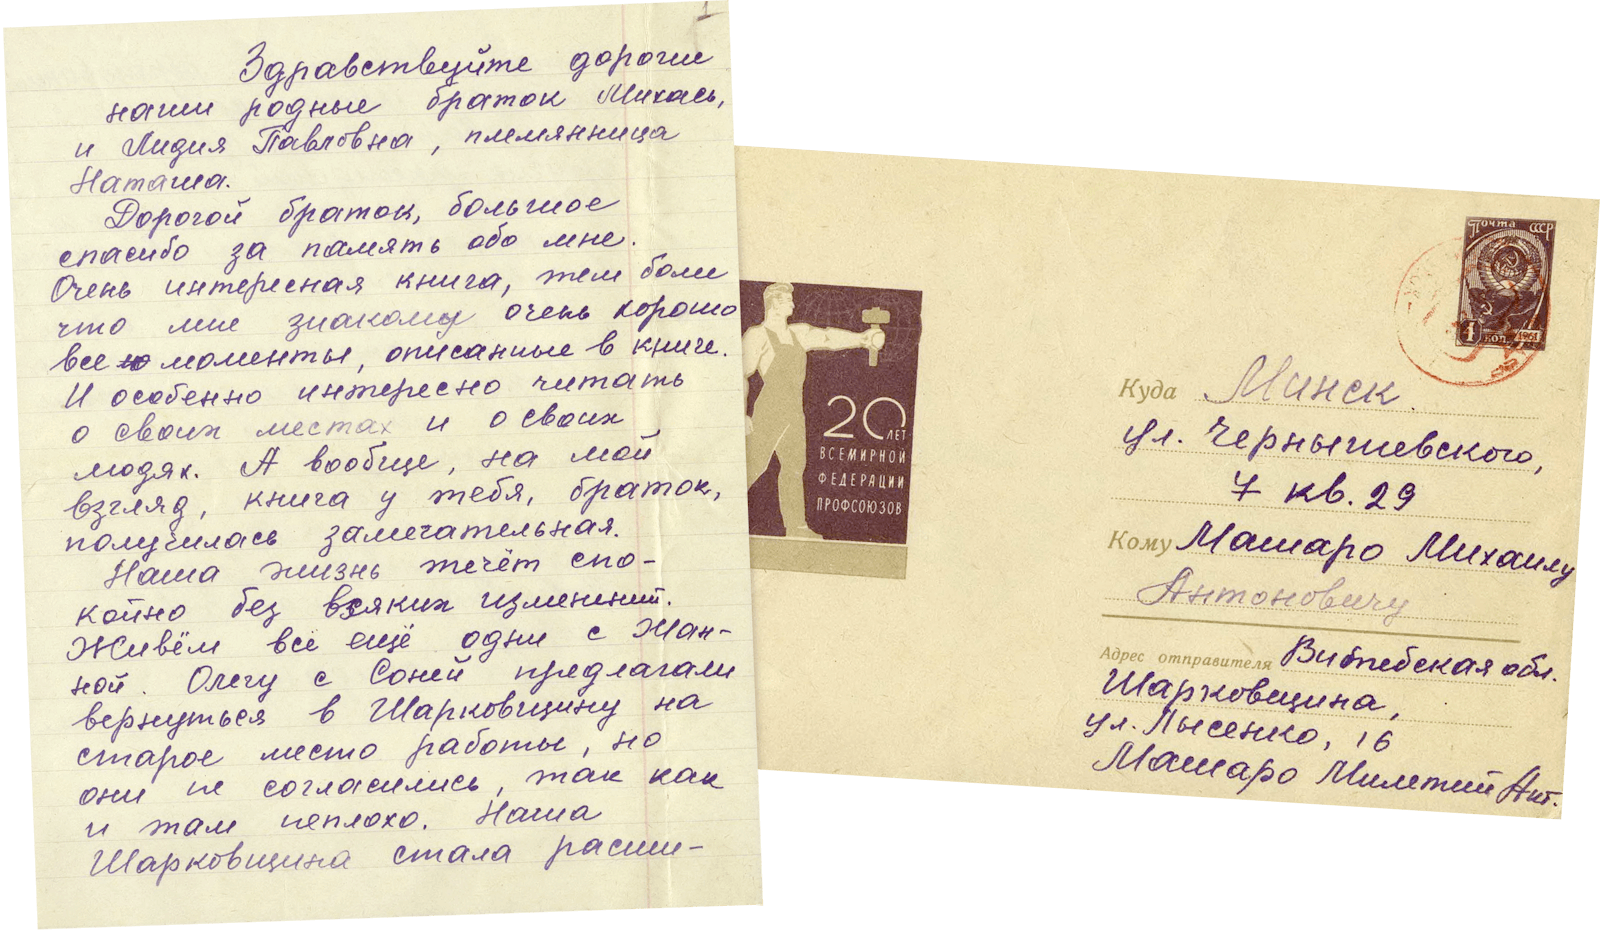 1
Здравствуйте дороги
наши родные браток Михась,
и Лидия Павловна, племянница
Наташа.
Дорогой браток, большое
спасибо за память обо мне.
Очень интересная книга, тем боли
что мне знакомы очень хорошо
все моменты, описанные в книге.
И особенно интересно читать
о своих местах и о своих
людях. А вообще, на мой
взгляд, книга у тебя, браток,
получилась замечательная.
Наша жизнь течёт спо-
койно без всяких изменений.
Живём всё ещё одни с Жан-
ной. Олегу с Соней предлагали
вернуться в Шарковщину на
старое место работы, но
они не согласились, так как
и там неплохо. Наша
Шарковщина стала расши-
20 ЛЕТ
ВСЕМИРНОЙ
ФЕДЕРАЦИИ
ПРОФСОЮЗОВ
Почта СССР
4 коп. 1961
Куда Минск
ул. Чернышевского,
7 кв. 29
Кому Машаро Михаилу
Антоновичу
Адрес отправителя Витебская обл.
Шарковщина,
ул. Лысенко, 16
Машаро Милетий Ант.